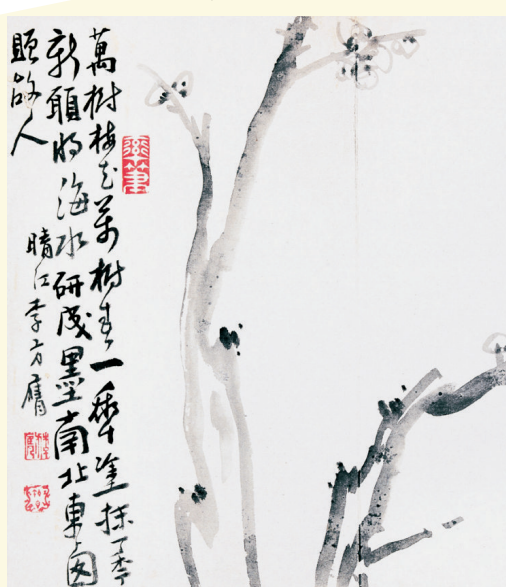 萬樹梅花萬樹春一番塗抹一番
新願將海水研成墨南北東西
贈故人
晴江李方膺